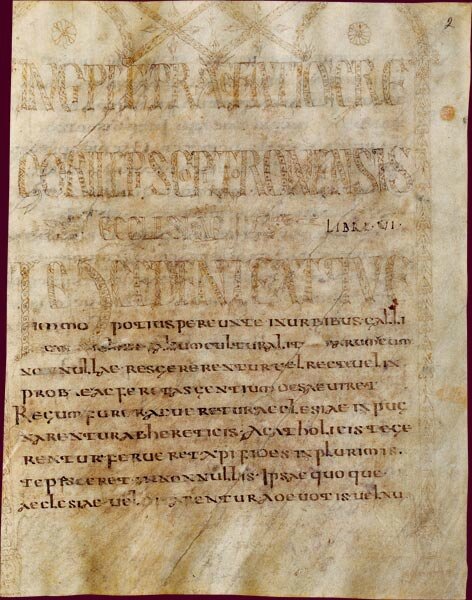 INCPIT PRAEFATIO GRE
GORII EPS TORONENSIS
ECCLESIAE LIBRI · VI ·
DECEDENTE ATQVE
immo potius pereunte in urbibus galli
canis liberalium cultura litterarum cum
nonnullae res gererentur uel rectae uel in
probeae ac feretas gentium desaeuiret
Regum furor acueretur aeclesiae inpug
narentur ab hereticis; a catholicis tege
rentur ferueret xpi fides in plurimis ·
tepisceret in nonnullis · Ipsae quoque
aeclesiae uel ditarentur a deuotis uel nu